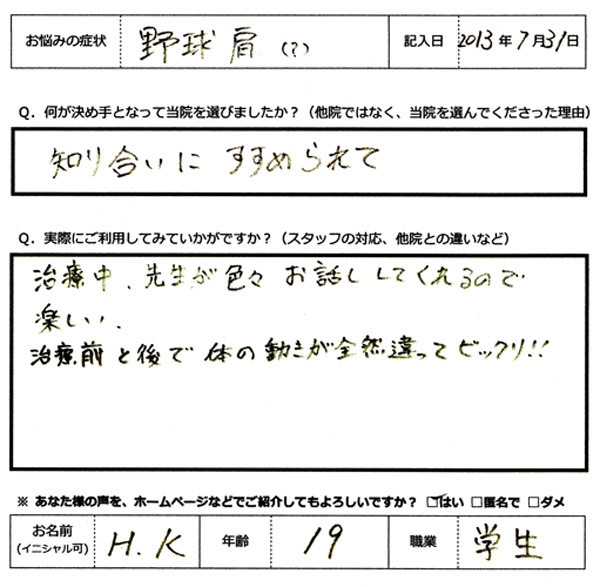 お悩みの症状 野球肩(?) 記入日 2013年7月31日
Q．何が決め手となって当院を選びましたか？（他院ではなく、当院を選んでくださった理由）
知り合いに すすめられて
Q．実際にご利用してみていかがですか？（スタッフの対応、他院との違いなど）
治療中、先生が色々 お話し してくれるので
楽しい、
治療前と後で 体の動きが全然違ってビックリ!!
※ あなた様の声を、ホームページなどでご紹介してもよろしいですか？ ☑はい □匿名で □ダメ
お名前 (イニシャル可) H.K 年齢 19 職業 学生